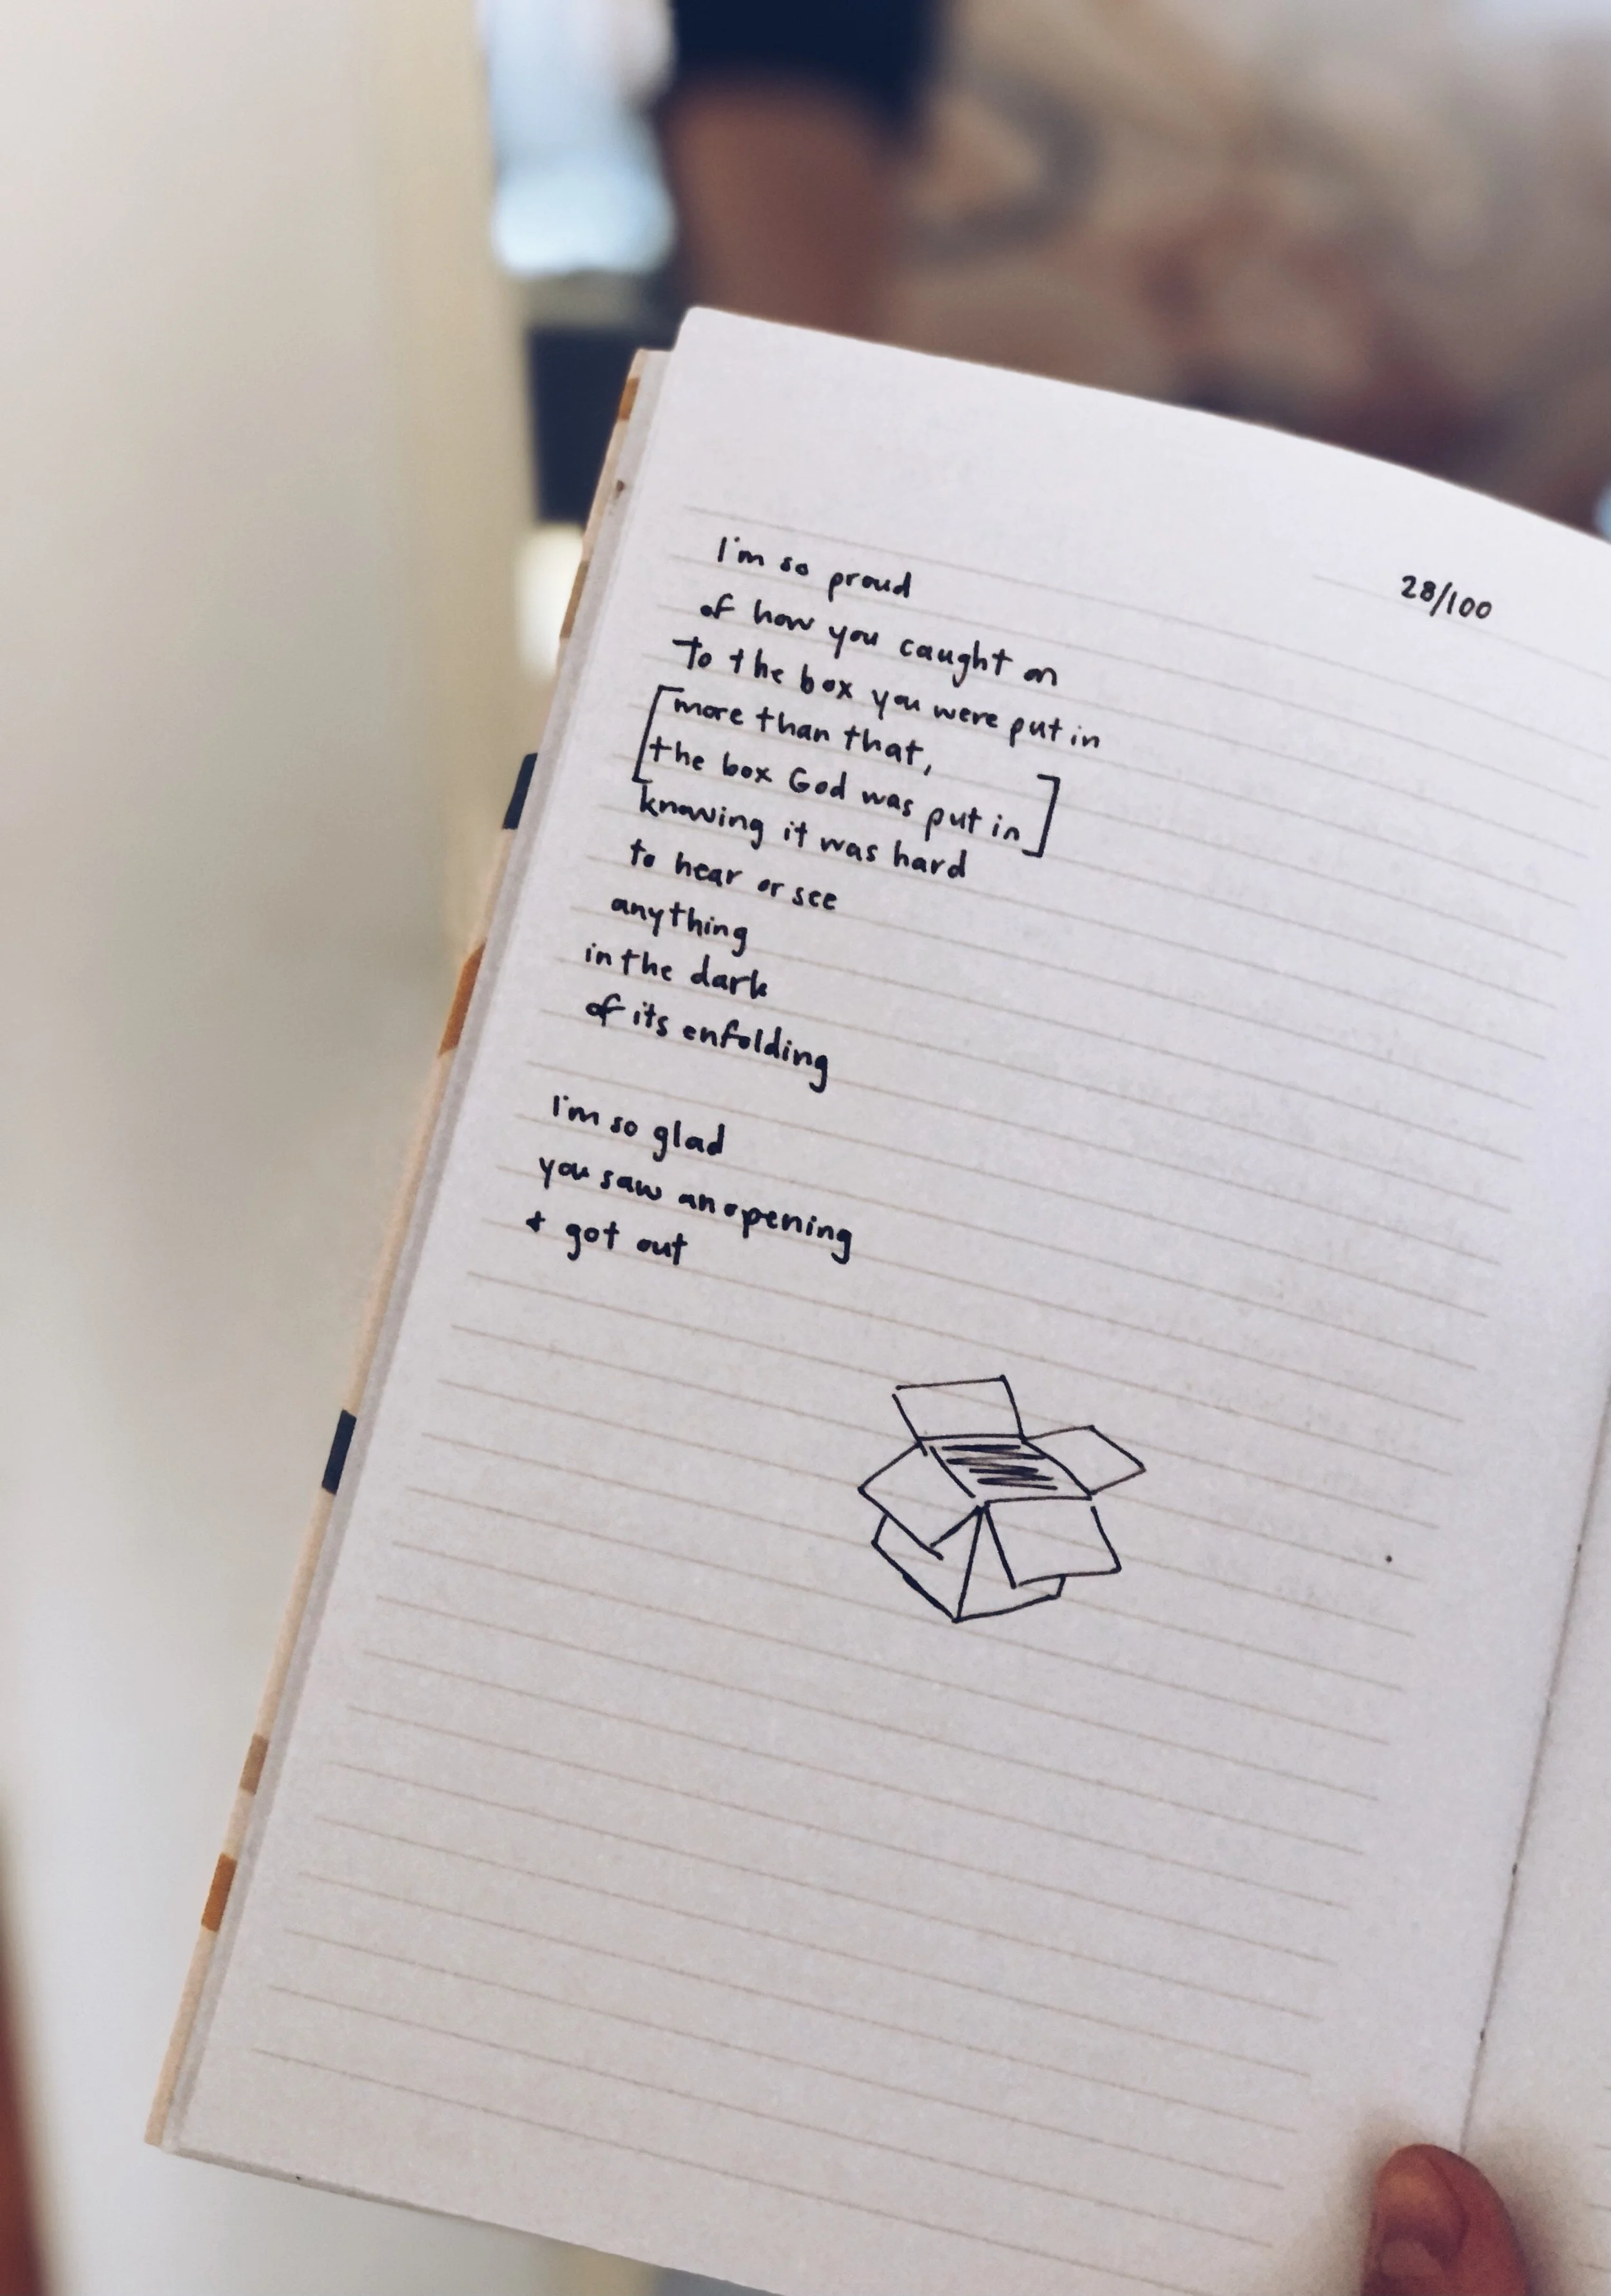 28/100
I'm so proud
of how you caught on
To the box you were put in
[more than that,
the box God was put in]
knowing it was hard
to hear or see
anything
in the dark
of its enfolding
I'm so glad
you saw an opening
+ got out